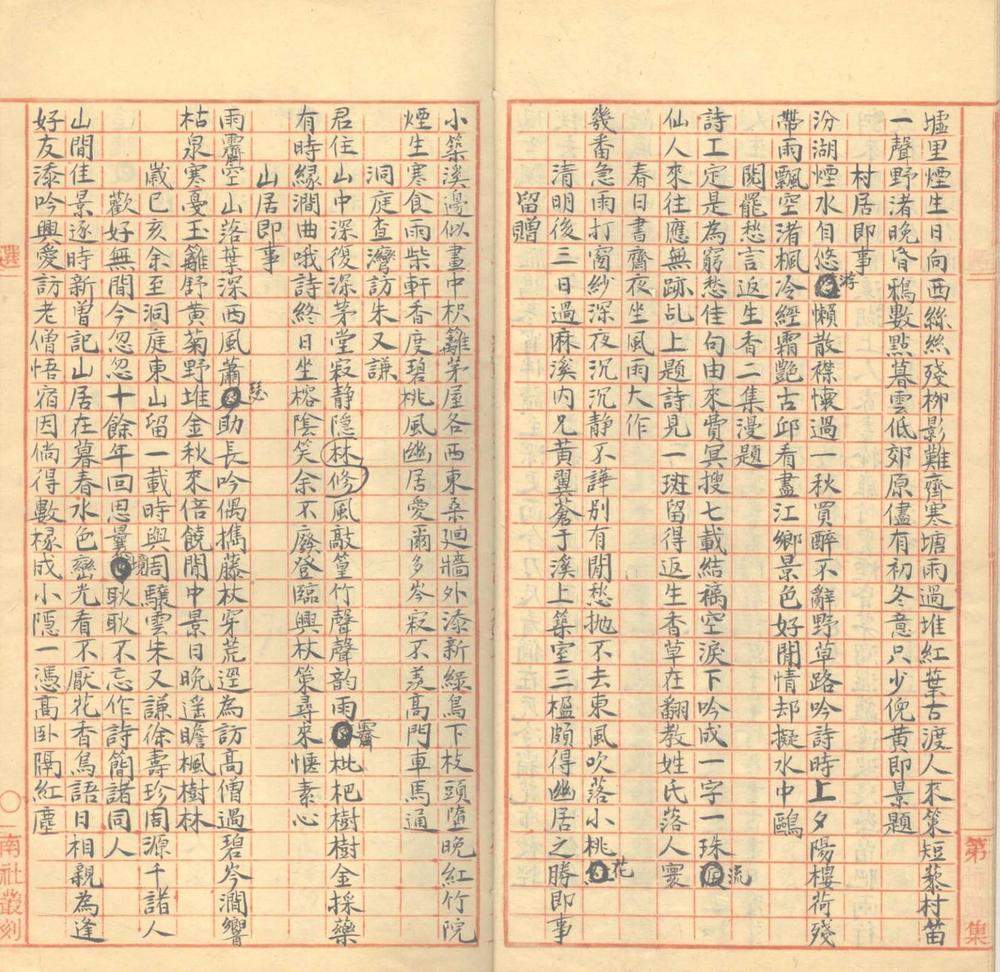 墟里煙生日向西絲絲殘柳影難齊寒塘雨過堆紅葉古渡人來策短藜村笛
一聲野渚晚昏鴉數點暮雲低郊原儘有初冬意只少倪黃即景題
村居即事
汾湖煙水自悠游懶散襟懷過一秋買醉不辭野草路吟詩時上夕陽樓荷殘
帶雨飄空渚楓冷經霜艷古邱看盡江鄉景色好閒情却擬水中鷗
閱罷愁言返生香二集漫題
詩工定是為窮愁佳句由來費冥搜七載結褵空淚下吟成一字一珠流
仙人來往應無跡乩上題詩見一斑留得返生香草在翻教姓氏落人寰
春日書齋夜坐風雨大作
幾番急雨打窗紗深夜沉沉靜不譁別有閒愁拋不去東風吹落小桃花
清明後三日過麻溪內兄黃翼蒼于溪上築室三楹頗得幽居之勝即事
留贈
小築溪邊似畫中枳籬茅屋各西東桑迴牆外添新綠鳥下枝頭墮晚紅竹院
煙生寒食雨柴軒香度碧桃風幽居愛爾多岑寂不羨高門車馬通
洞庭查灣訪朱又謙
君住山中深復深茅堂寂靜隱林修風敲篁竹聲聲韵雨霽枇杷樹樹金採藥
有時緣澗曲哦詩終日坐榕陰笑余不廢登臨興杖策尋來愜素心
山居即事
雨霽空山落葉深西風蕭瑟助長吟偶攜藤杖穿荒逕為訪高僧過碧岑澗響
枯泉寒戛玉籬野黃菊野堆金秋來倍饒閒中景日晚遥瞻楓樹林
歲已亥余至洞庭東山留一載時與周驤雲朱又謙徐壽珍周源千諸人
歡好無間今忽忽十餘年回思曩境耿耿不忘作詩簡諸同人
山間佳景逐時新曾記山居在暮春水色巒光看不厭花香鳥語日相親為逢
好友添吟興愛訪老僧悟宿因倘得數椽成小隱一憑高卧隔紅塵
選
〇
南社叢刻
第
集